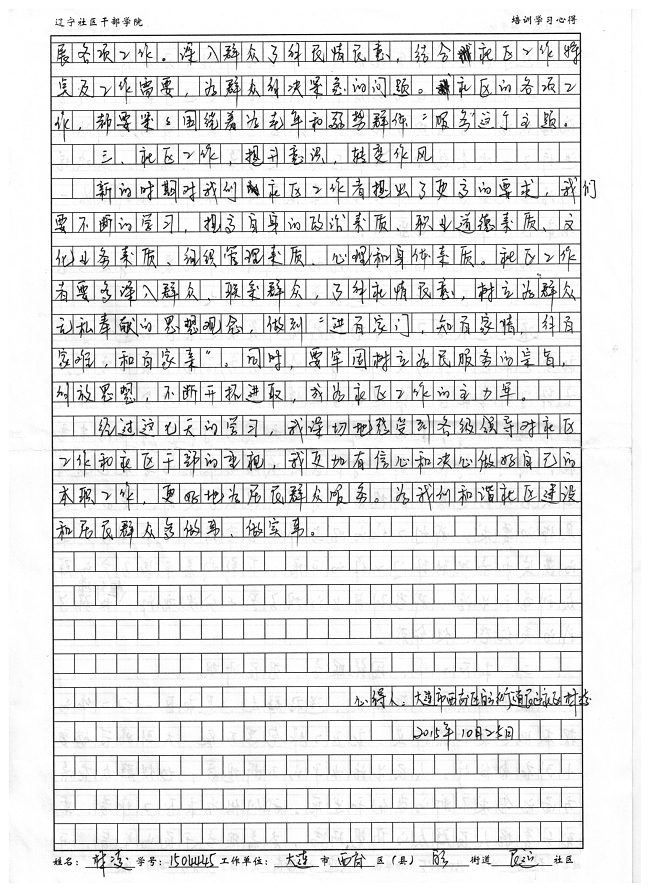 辽宁社区干部学院 培训学习心得
展各项工作。深入群众了解民情民意，结合社区工作特
点及工作需要，为群众解决紧急的问题。社区的各项工
作，都要紧紧围绕着为老年和弱势群体“服务”这个主题。
三、社区工作，提升意识，转变作风
新的时期对我们社区工作者提出了更高的要求，我们
要不断的学习，提高自身的政治素质、职业道德素质、文
化业务素质、组织管理素质、心理和身体素质。社区工作
者要多深入群众，联系群众，了解社情民意，树立为群众
无私奉献的思想观念，做到“进百家门，知百家情，解百
家难，和百家亲”。同时，要牢固树立为民服务的宗旨，
解放思想，不断开拓进取，成为社区工作的主力军。
经过这几天的学习，我深切地感受到各级领导对社区
工作和社区干部的重视，我更加有信心和决心做好自己的
本职工作，更好地为居民群众服务。为我们和谐社区建设
和居民群众多做事，做实事。
心得人：大连市西岗区
2015年10月25日
姓名： 学号：15014445 工作单位：大连市西岗区（县） 街道 社区